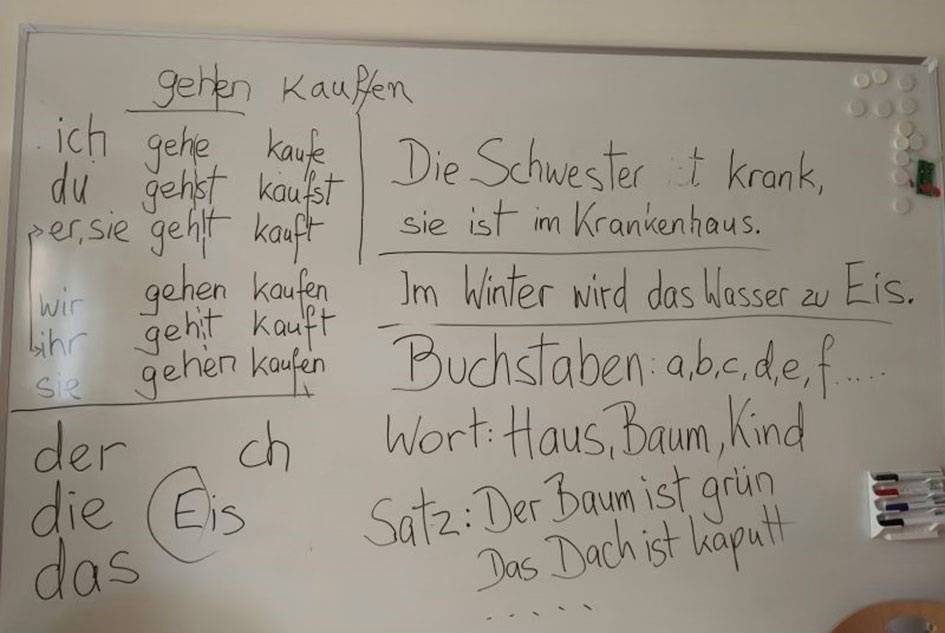 gehen kaufen
ich gehe kaufe
du gehst kaufst
er, sie geht kauft
wir gehen kaufen
ihr geht kauft
sie gehen kaufen
der ch
die Eis
das
Die Schwester t krank,
sie ist im Krankenhaus.
Im Winter wird das Wasser zu Eis.
Buchstaben: a,b,c,d,e,f.....
Wort: Haus, Baum, Kind
Satz: Der Baum ist grün
Das Dach ist kaputt
.....